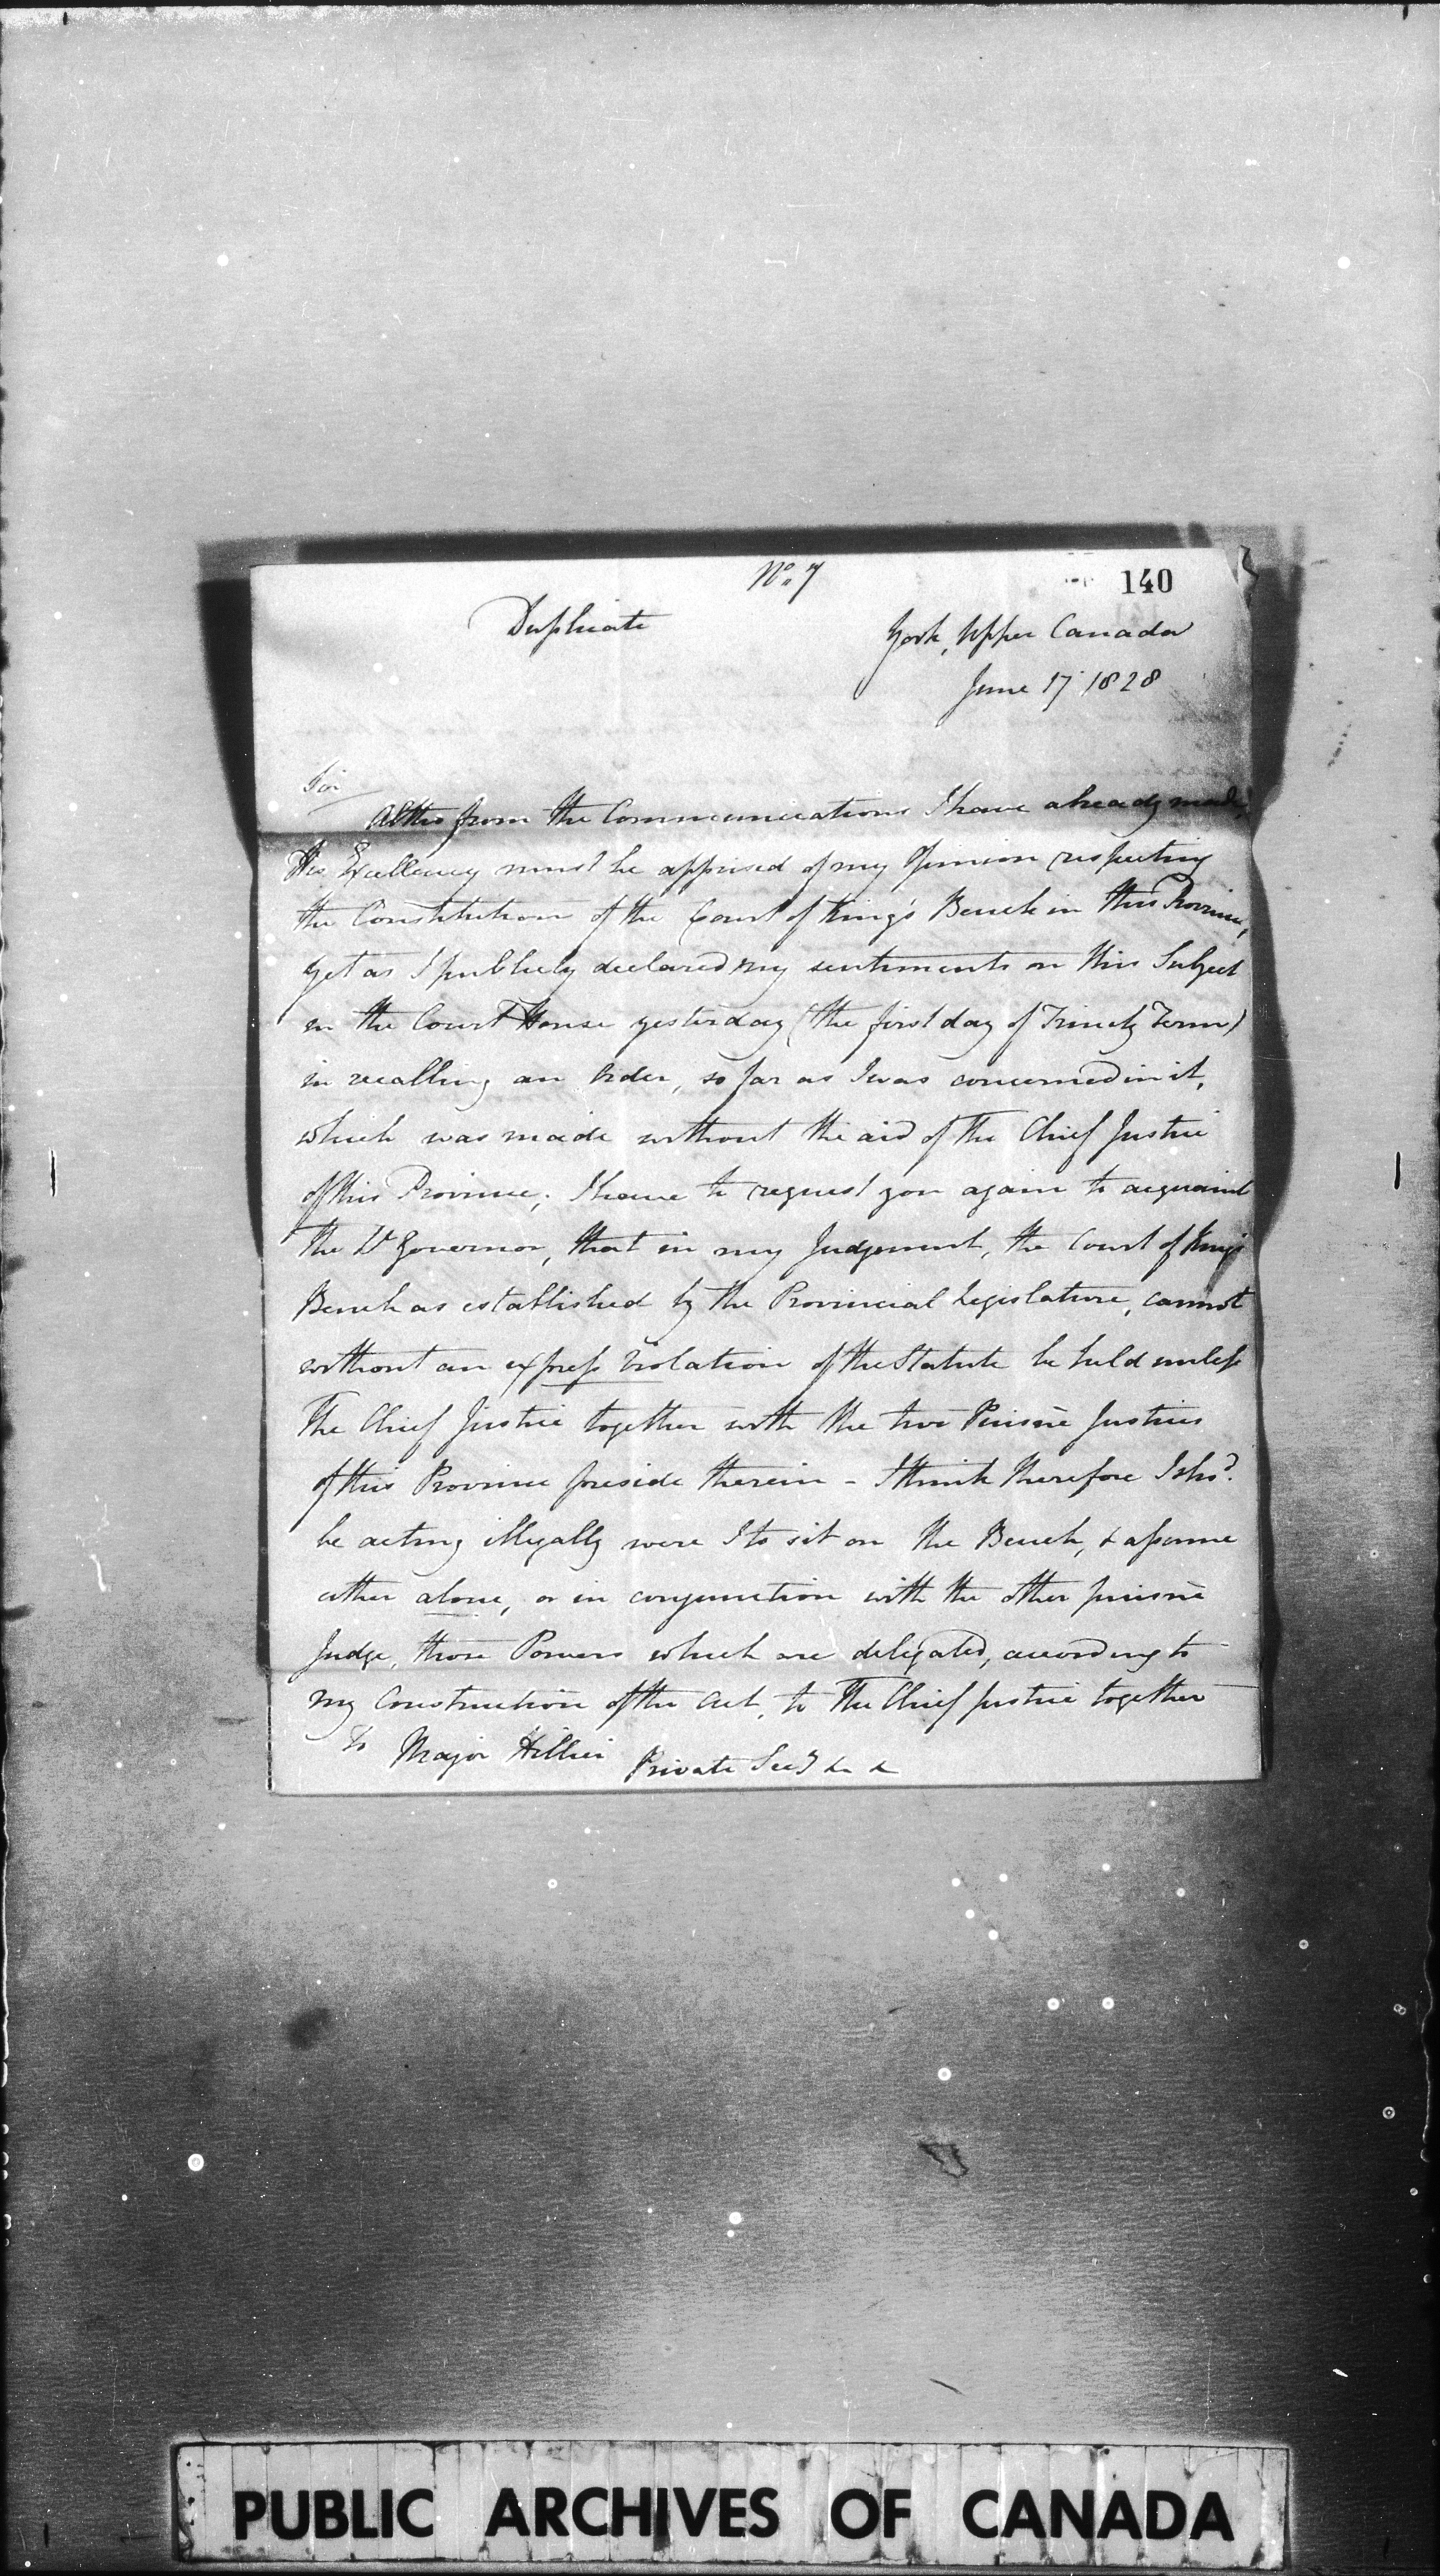 No. 7
140
Duplicate
York, Upper Canada
June 17 1828
Sir
Altho from the Communications I have already made,
His Excellency must be apprised of my Opinion respecting
the Constitution of the Court of King's Bench in this Province,
yet as I publicly declared my sentiments on this Subject
in the Court House yesterday (the first day of Trinity Term)
in recalling an Order, so far as I was concerned in it,
which was made without the aid of the Chief Justice
of this Province; I have to request you again to acquaint
the Lt Governor, that in my Judgement, the Court of King's
Bench as established by the Provincial Legislature, cannot
without an express violation of the Statute be held unless
The Chief Justice together with the two Puisnè Justices
of this Province preside therein - I think therefore I shod.
be acting illegally were I to sit on the Bench, & assume
either alone, or in conjunction with the other puisnè
Judge, those Powers which are delegated, according to
my Construction of the Act, to The Chief Justice together
To Major Hillier Private Secy & &
PUBLIC ARCHIVES OF CANADA